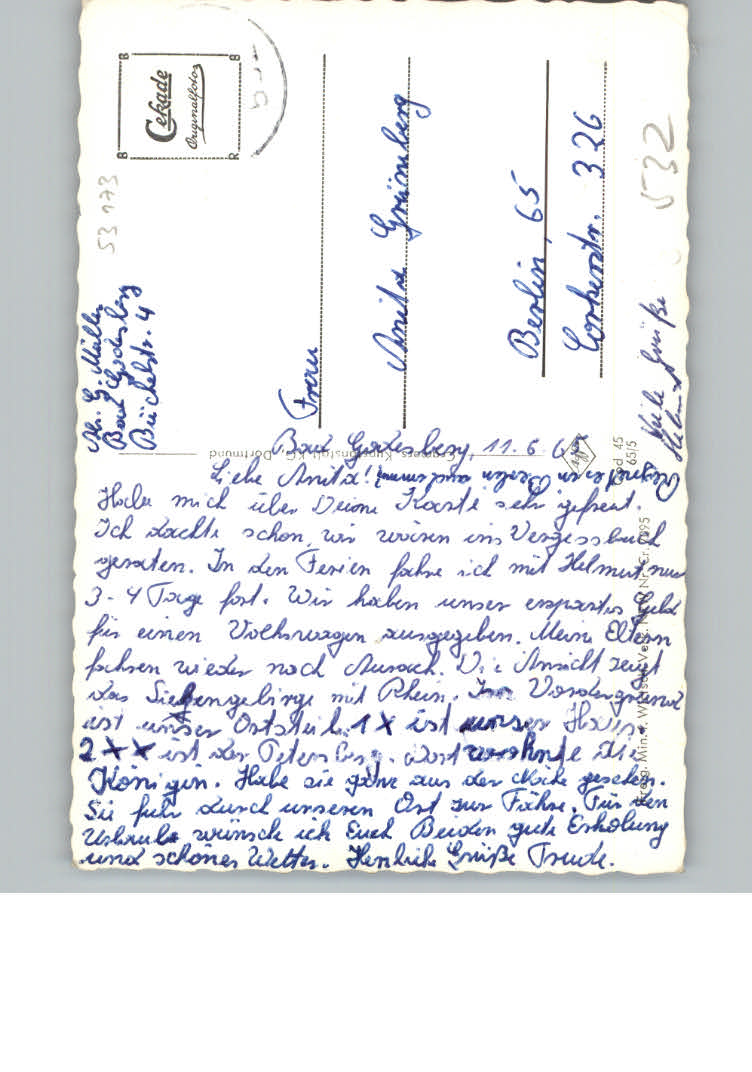 Cekade
Originalfoto
B B B R
53 173
Abs. G. Müller
Bad Godesberg
Büchelstr. 4
Frau
Anita Grünberg
Berlin, 65
Corkerstr. 326
532
Viele Grüße
Helmut
Kunstanstalt KG. Dortmund
65/5
Bad Godesberg, 11. 6. 6
Liebe Anita!
Habe mich über Deine Karte sehr gefreut.
Ich dachte schon, wir wären ins Vergessbuch
geraten. In den Ferien fahre ich mit Helmut nur
3-4 Tage fort. Wir haben unser erspartes Geld
für einen Volkswagen ausgegeben. Meine Eltern
fahren wieder nach Aurach. Die Ansicht zeigt
das Siebengebirge mit Rhein. Im Vordergrund
ist unser Ortsteil. 1 X ist unser Haus.
2 X X ist der Petersberg. Dort wohnte die
Königin. Habe sie ganz aus der Nähe gesehen.
Sie fuhr durch unseren Ort zur Fähre. Für den
Urlaub wünsche ich Euch Beiden gute Erholung
und schönes Wetter. Herzliche Grüße Trude.